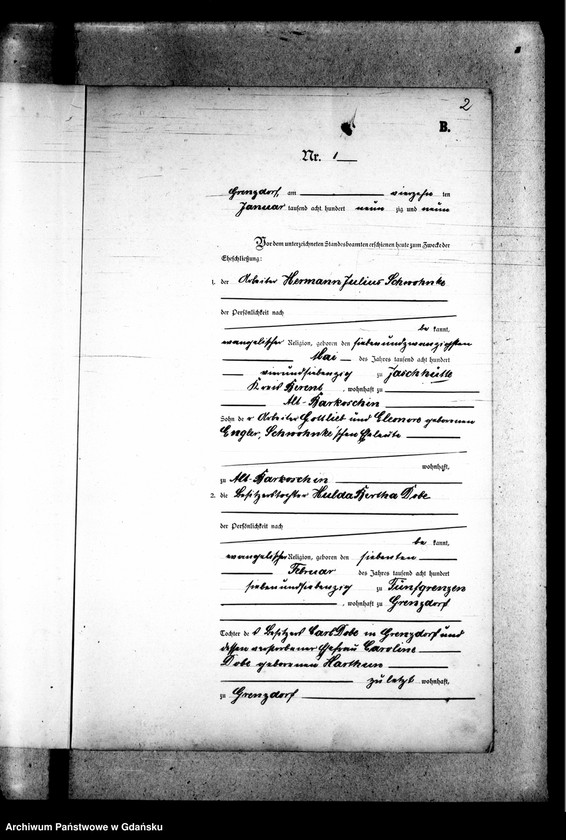 2
B.
Nr. 1
Grenzdorf, am vierzehn ten
Januar tausend acht hundert neun zig und neun
Vor dem unterzeichneten Standesbeamten erschienen heute zum Zwecke der
Eheschließung:
1. der Arbeiter Hermann Julius Schwohnke
der Persönlichkeit nach
be kannt,
evangelischer Religion, geboren den siebenundzwanzigsten
Mai des Jahres tausend acht hundert
vierundsiebenzig zu Jaschhütte
Kreis Berent, wohnhaft zu
Alt-Barkoschin
Sohn de r Arbeiter Gottlieb und Eleonore geborenen
Engler, Schwohnke'schen Eheleute
wohnhaft,
zu Alt-Barkoschin
2. die Besitzertochter Hulda Bertha Dobe
der Persönlichkeit nach
be kannt,
evangelischer Religion, geboren den siebenten
Februar des Jahres tausend acht hundert
siebenundsiebenzig zu Fünfgrenzen
, wohnhaft zu Grenzdorf
Tochter de s Besitzers Carl Dobe in Grenzdorf und
dessen verstorbener Ehefrau Caroline
Dobe geborenen Harthun
zuletzt wohnhaft,
zu Grenzdorf
Archiwum Państwowe w Gdańsku